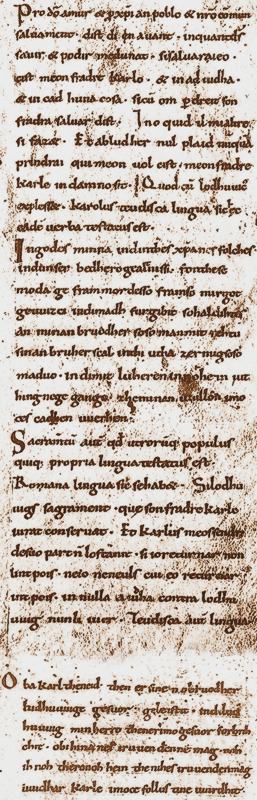 Pro dõ amur & p xpian poblo & nro cõmun
saluament . dist di en auant . inquantds
sauir & podir medunat . sisaluaraieo .
cist meon fradre Karlo . & in adiudha .
& in cad huna cosa . sicũ om p dreit son
fradra saluar dist . Ino quid il mialtre
si faz& . Et abludher nul plaid nũquã
prindrai qui meon uol cist . meonfradre
Karle in damno sit . Quod cũ lodhuuic
explesset . Karolus teudisca lingua sic ec
eade uerba testatus est .
Ingodes minna indinthes xpanes folches
indunser bedhero gealtnissi . fonthese
moda ge frammordesso framso mirgot
geuuizci indimadh furgibit sohaldihtes
an minan bruodher soso manmit rehtu
sinan bruher scal inthi utha zermigsoso
maduo . indimit luheren in nohein iut
hing nege gango . theminan uuillon imo
ces cadhen uuerhen .
Sacramtũ aut qd utrorũq; populus
quiq; propria lingua testatus est .
Romana lingua sic sehabet . Silodhu
uigs sagrament . que son fradre Karlo
iurat conseruat . Et Karlus meossendra
desuo partñ lostanit . si ioreturnar non
lint pois . neio neneuls cui eo returnar
int pois . in nulla aiudha contra lodhu
uuig nunli iuer . Teudisca aut lingua
Oba karl then eid . then er sine no bruodher
ludhuuuige gesuor . geleistit . indilud
huuuig min herro thenerimo gesuor forbrih
chit . obihina nes iruuendenne mag . noh
ih noh thero noh hein thenihes iruuendenmag
uuidhar karle imoce follusti ne uuirdhit .